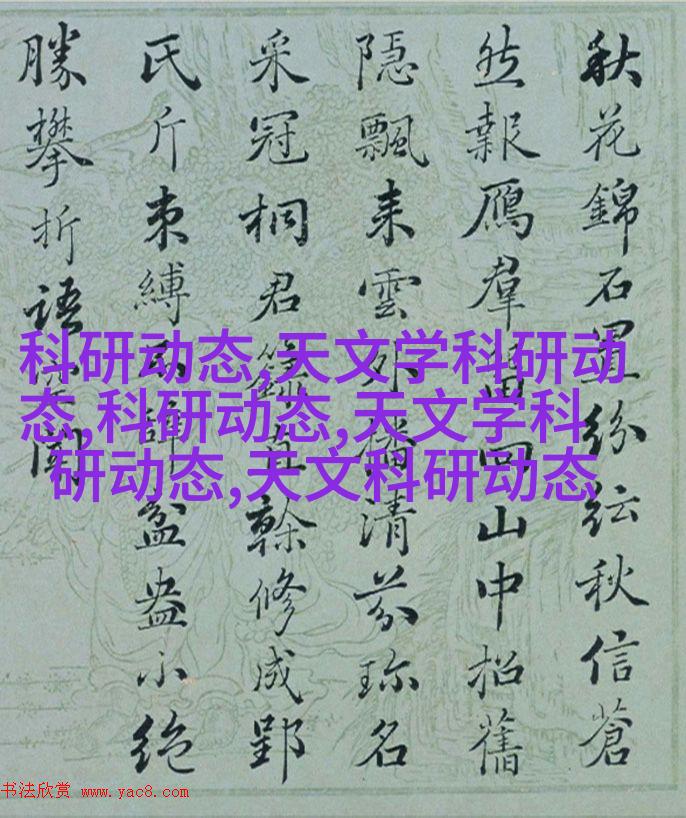 秋花錦石紛紜秋信蒼
然報鴈羣回山中招舊
隱飄来雲外清芬珎名
采冠桐君直榦修成郢
氏斤束縛辞盆盎小絶
勝攀折語
科研动态,天文学科研动
态,科研动态,天文学科
研动态,天文科研动态
书法欣赏 www.yac8.com